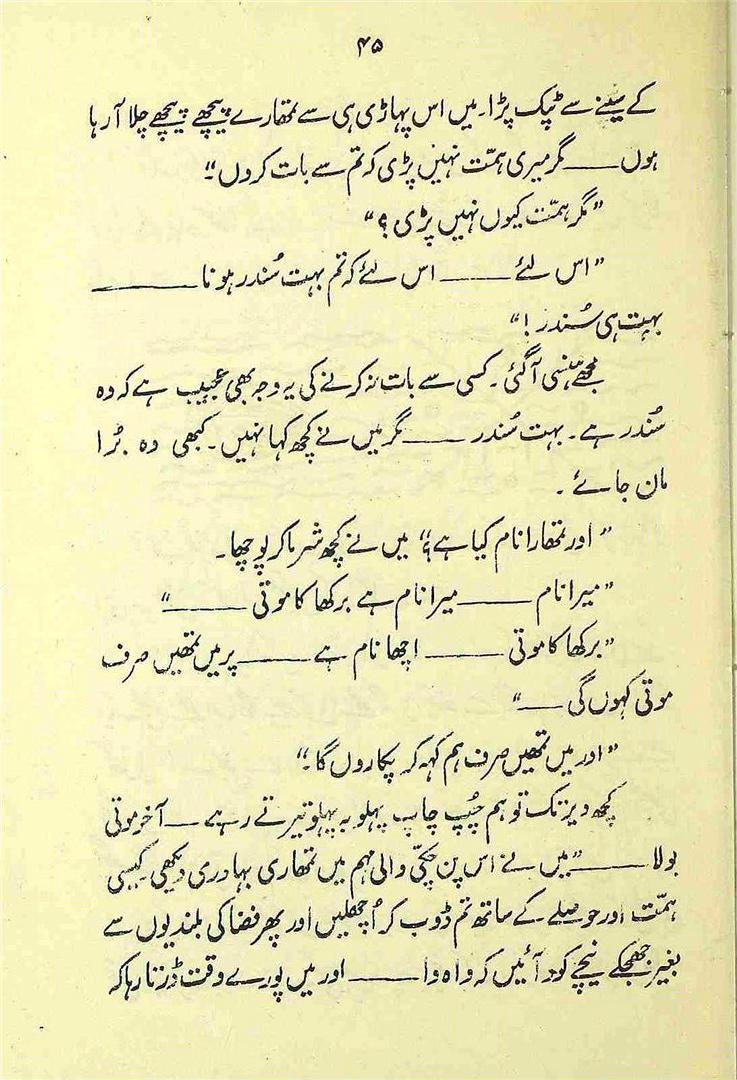 ۴۵
کے سینے سے ٹپک پڑا۔ میں اس پہاڑی ہی سے تمھارے پیچھے پیچھے چلا آ رہا
ہوں ــــــ مگر میری ہمّت نہیں پڑی کہ تم سے بات کروں۔"
"مگر ہمّت کیوں نہیں پڑی؟"
"اس لئے ــــــ اس لئے کہ تم بہت سُندر ہو نا ــــــ
بہت ہی سُندر!"
مجھے ہنسی آ گئی۔ کسی سے بات نہ کرنے کی یہ وجہ بھی عجیب ہے کہ وہ
سُندر ہے۔ بہت سُندر ــــــ مگر میں نے کچھ کہا نہیں۔ کبھی وہ بُرا
مان جائے۔
"اور تمھارا نام کیا ہے؟" میں نے کچھ شرما کر پوچھا۔
"میرا نام ــــــ میرا نام ہے برکھا کا موتی ــــــ"
"برکھا کا موتی ــــــ اچھا نام ہے ــــــ پر میں تمھیں صرف
موتی کہوں گی ــــــ"
"اور میں تمھیں صرف ہم کہہ کر پکاروں گا۔"
کچھ دیر تک تو ہم چُپ چاپ پہلو بہ پہلو تیرتے رہے ــــــ آخر موتی
بولا ــــــ "میں نے اس پن چکّی والی مہم میں تمھاری بہادری دیکھی۔ کیسی
ہمّت اور حوصلے کے ساتھ تم ڈوب کر اُچھلیں اور پھر فضا کی بلندیوں سے
بغیر جھجکے نیچے کود آئیں کہ واہ وا ــــــ اور میں پورے وقت ڈرتا رہا کہ